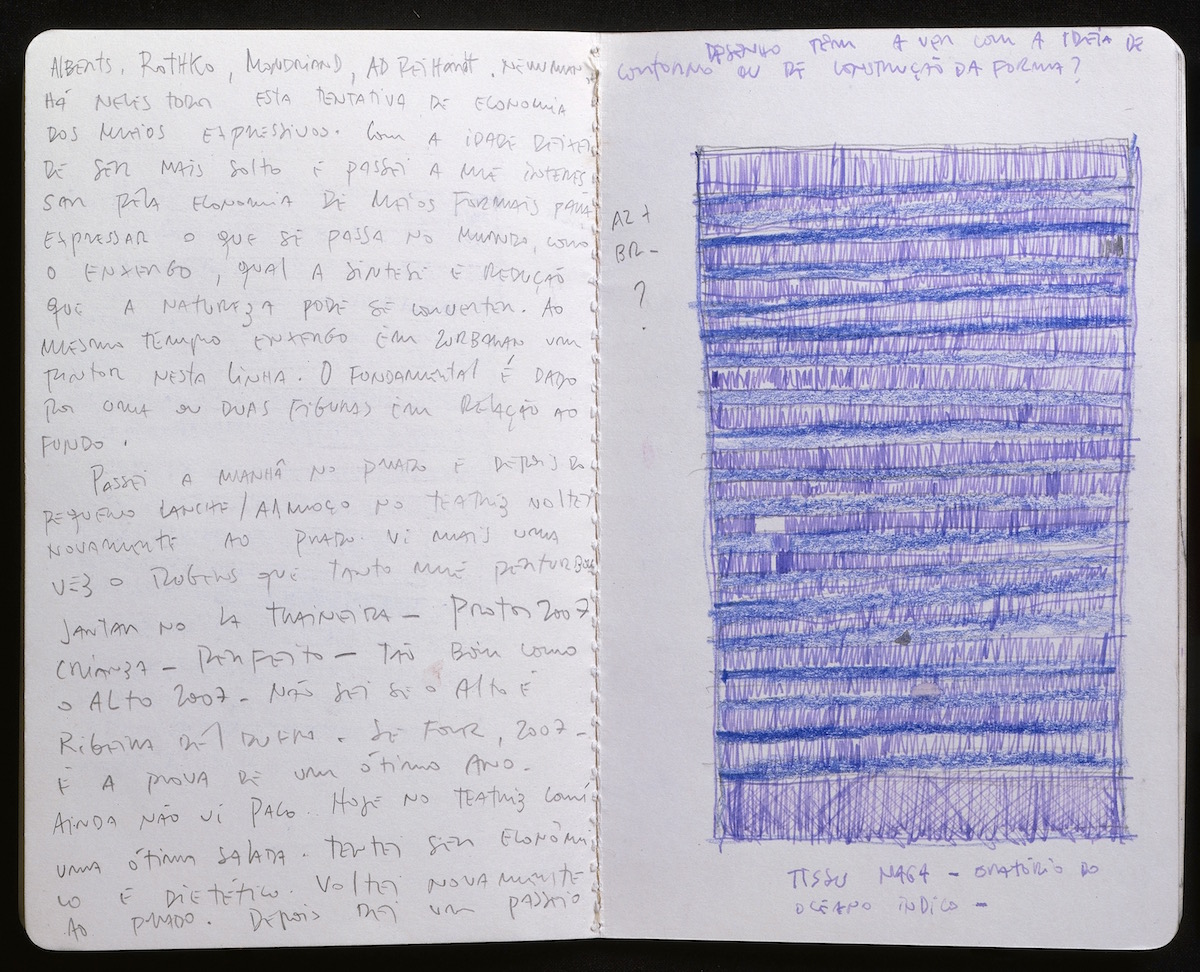 ALBERTS, ROTHKO, MONDRIAND, AD REIHARDT, NEWMAN
HÁ NELES TODOS ESTA TENTATIVA DE ECONOMIA
DOS MEIOS EXPRESSIVOS. COM A IDADE DEIXEI
DE SER MAIS SOLTO E PASSEI A ME INTERES
SAR PELA ECONOMIA DE MEIOS FORMAIS PARA
EXPRESSAR O QUE SE PASSA NO MUNDO, COMO
O ENXERGO, QUAL A SÍNTESE E REDUÇÃO
QUE A NATUREZA PODE SE CONVERTER. AO
MESMO TEMPO ENXERGO EM ZURBARAN UM
PINTOR NESTA LINHA. O FUNDAMENTAL É DADO
POR UMA OU DUAS FIGURAS EM RELAÇÃO AO
FUNDO.
PASSEI A MANHÃ NO PRADO E DEPOIS DO
PEQUENO LANCHE/ALMOÇO NO TEATRIZ VOLTEI
NOVAMENTE AO PRADO. VI MAIS UMA
VEZ O RUBENS QUE TANTO ME PERTURBOU
JANTAR NO LA TRAINEIRA – PROTOS 2007
CRIANZA – PERFEITO – TÃO BOM COMO
O ALTO 2007 – NÃO SEI SE O ALTO É
RIBEIRA DEL DUERO. SE FOUR, 2007 –
É A PROVA DE UM ÓTIMO ANO.
AINDA NÃO VI PACO. HOJE NO TEATRIZ COMI
UMA ÓTIMA SALADA. TENTEI SER ECONÔMI
CO E DIETÉTICO. VOLTEI NOVAMENTE
AO PRADO. DEPOIS DEI UM PASSEIO
DESENHO TEM A VER COM A IDEIA DE
CONTORNO OU DE CONSTRUÇÃO DA FORMA?
AZ +
BR –
?
TISSU NAGA – ORATÓRIO DO
OCEANO ÍNDICO –